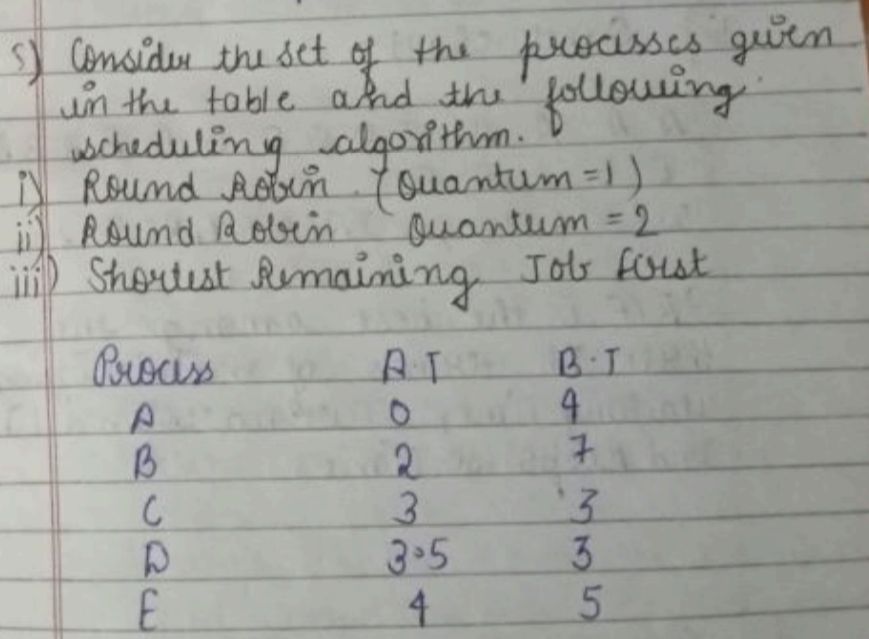 5) Consider the set of the processes given
in the table and the following
scheduling algorithm.
i) Round Robin (Quantum = 1)
ii) Round Robin Quantum = 2
iii) Shortest Remaining Job first
Process A.T B.T
A 0 4
B 2 7
C 3 3
D 3.5 3
E 4 5